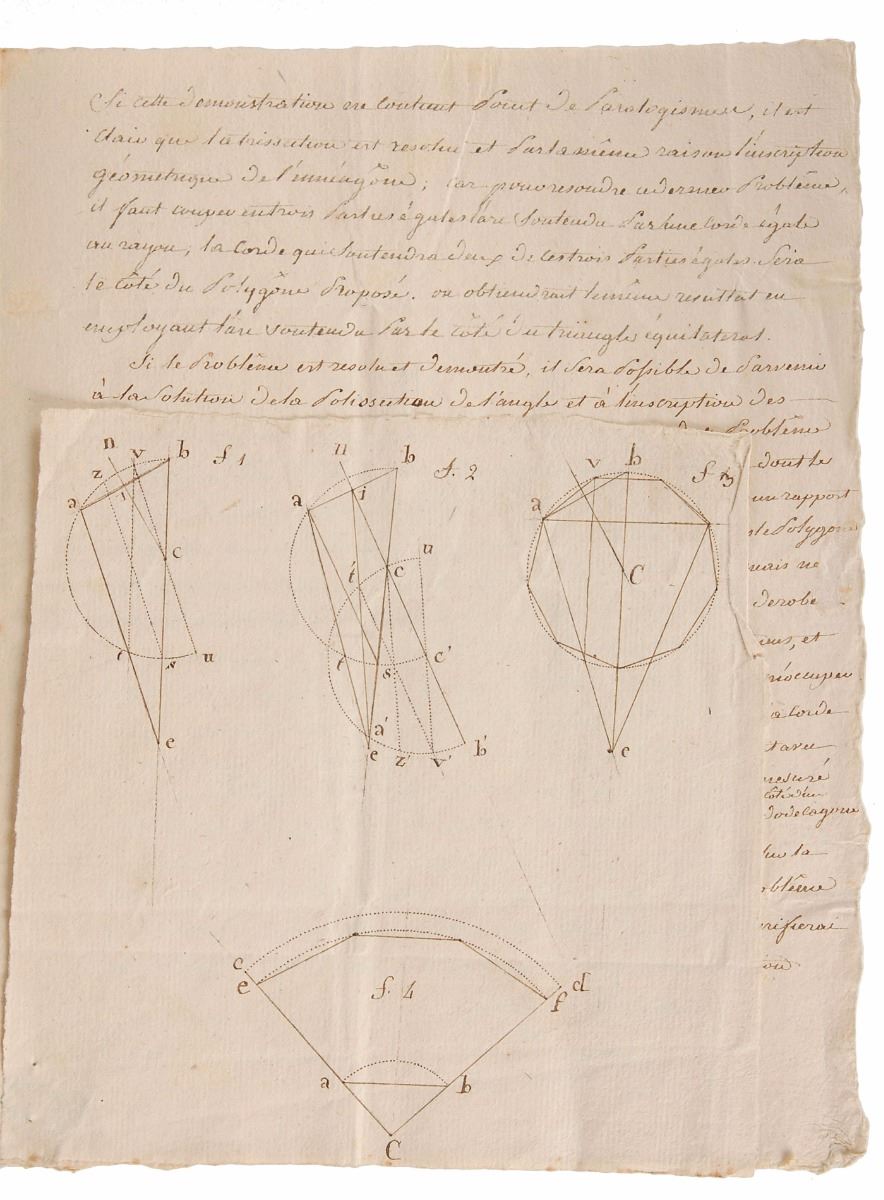 Si cette demonstration ne contient Point de Paralogisme, il est
clair que la trissection est resolue et Par la même raison l'inscription
géometrique de l'ennéagône; car pour resoudre ce dernier Problême,
il faut couper en trois Parties égales l'arc Soutendu Par une Corde égale
au rayon; la Corde qui Soutendra deux de ces trois Parties égales Sera
le côté du Polygône Proposé. on obtiendrait le même resultat en
employant l'arc Soutendu Par le côté du triangle équilateral.
Si le Problême est resolu et demontré, il Sera Possible de Parvenir
à la Solution de la Polissection de l'angle et à l'inscription des
de Problême
dont le
un rapport
le Polygone
mais ne
derobe
et
réoccuper
la Corde
mesuré
côté d'un
dodecagone
Sur la
oblême
verifierai
n v b f 1
z
a i
c
t s u
e
n b f. 2
a i
u
t c
t s c'
a'
e z' v' b'
v b f 3
a
C
e
c d
e f. 4 f
a b
C